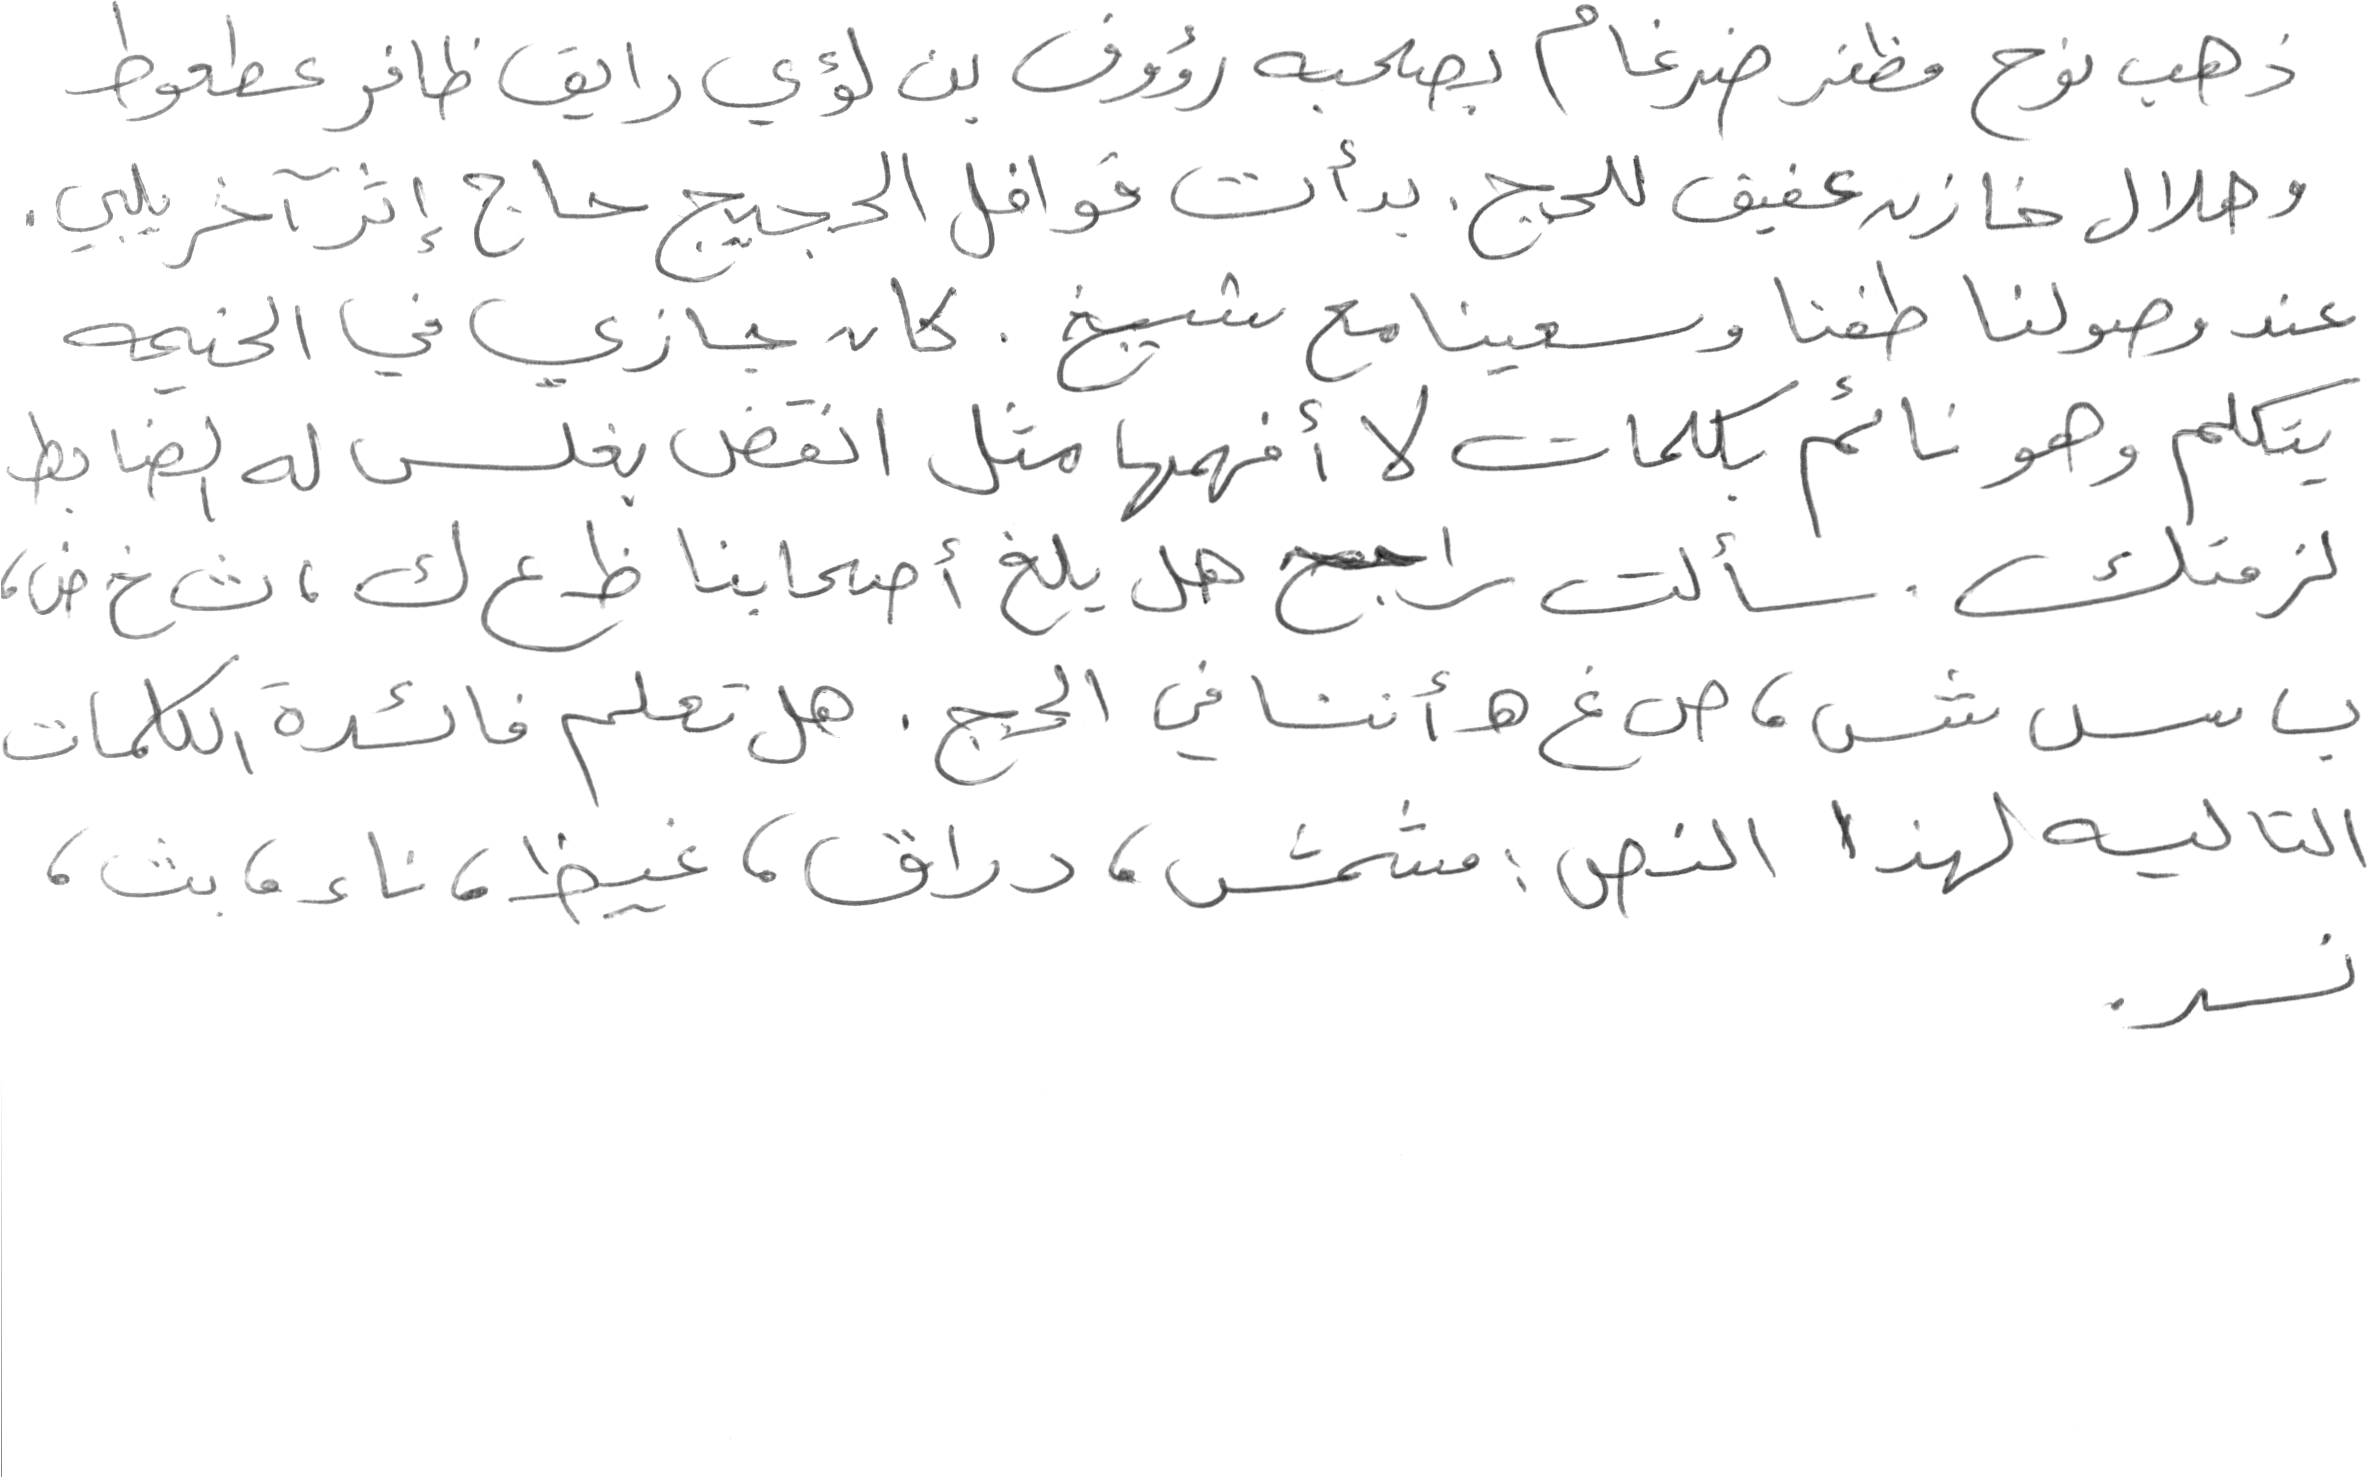 ذهب نوح مظفر ضرغام بصحبه رؤوف بن لؤي رايق ظافر عطعوط
وهلال خازن عفيف للحج. بدأت قوافل الحجيج حاج إثر آخر يلبي.
عند وصولنا طفنا وسعينا مع شيخ. كان حجازي في الخيمه
يتكلم وهو نائم بكلمات لا أفهمها مثل انقض بغلس له الضابط
لزمتك. سألت راجح هل بلغ أصحابنا ظ ع ك، ث خ ض،
ب س ش، ص غ ه أننا في الحج. هل تعلم فائدة الكلمات
التاليه لهذا النص: مشمش، دراق، غيظ، ناء، بث،
نسر.